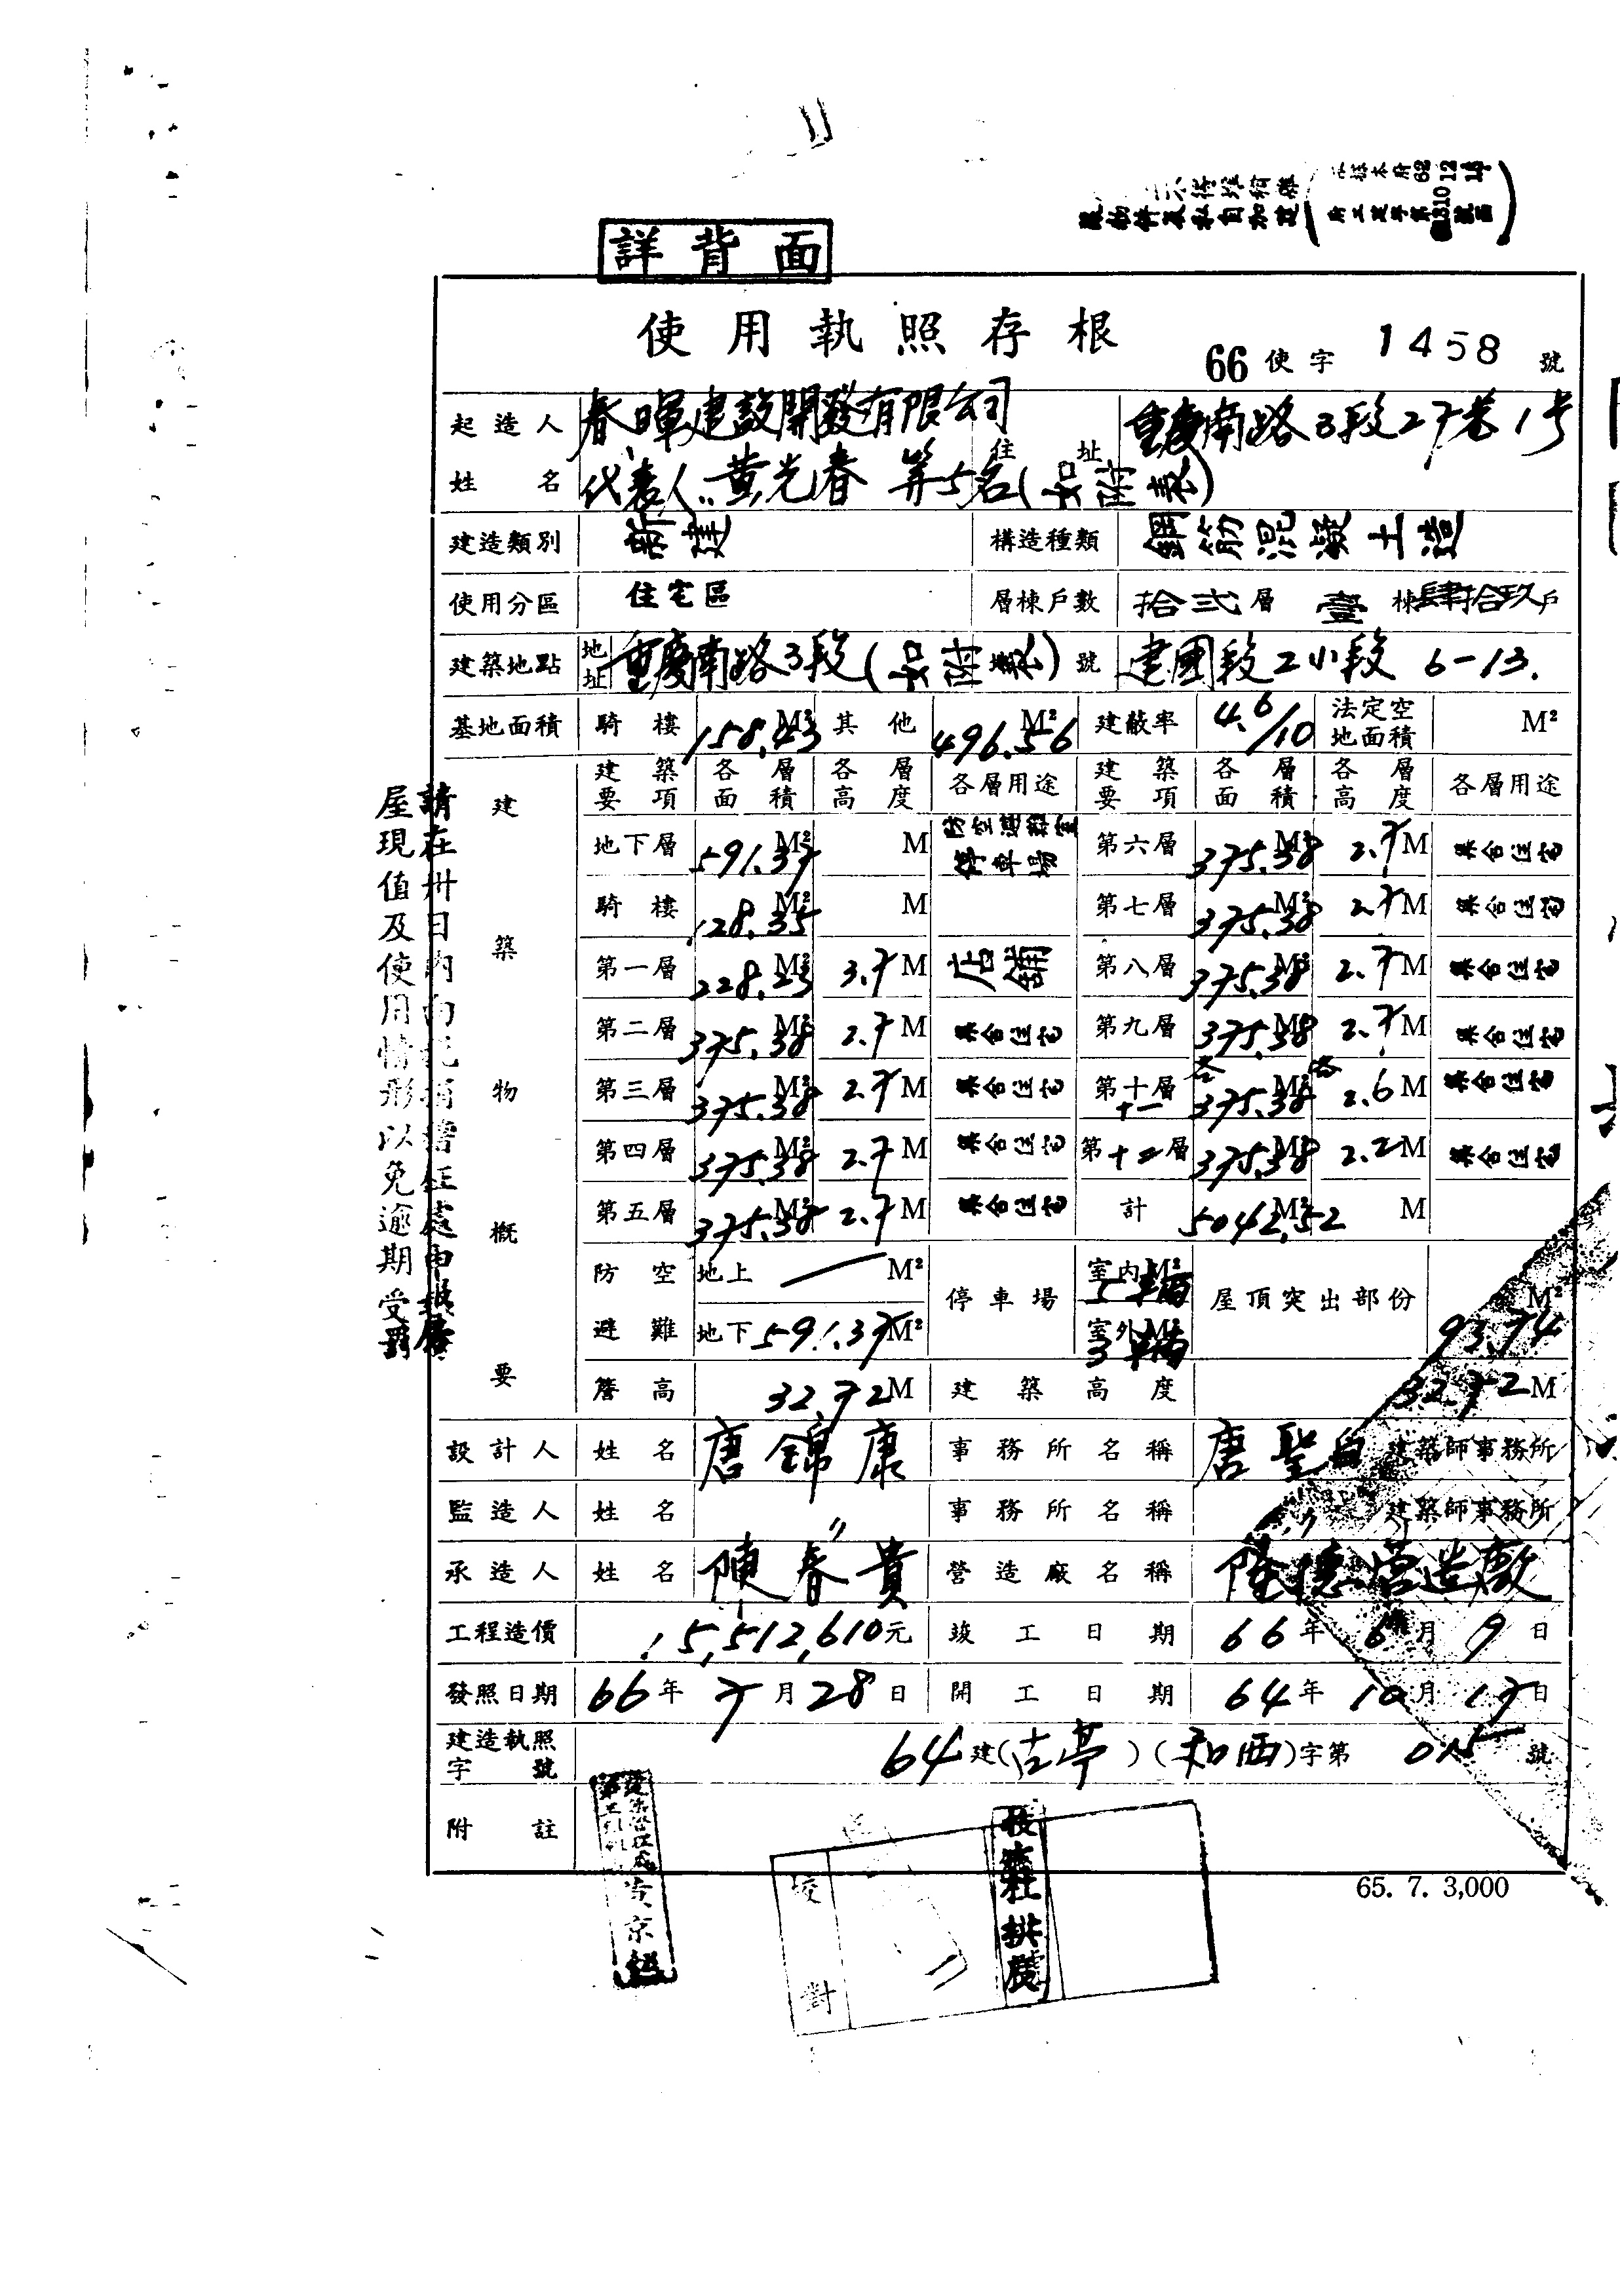 詳背面
使用執照存根
66 使字 1458 號
起造人姓名 春暉建設開發有限公司 代表人:黃光春 等5名(如附表)
住址 重慶南路3段27巷1号
建造類別 新建 構造種類 鋼筋混凝土造
使用分區 住宅區 層棟戶數 拾弍層 壹棟肆拾玖戶
建築地點 地址 重慶南路3段(如附表)
地號 建國段2小段 6-13.
基地面積 騎樓 158.43 M² 其他 496.56 M² 建蔽率 4.6/10 法定空地面積 M²
建築物概要
建築要項 各層面積 各層高度 各層用途 建築要項 各層面積 各層高度 各層用途
地下層 591.37 M² M 防空避難室 停車場 第六層 375.38 M² 2.7 M 集合住宅
騎樓 128.35 M² M 第七層 375.38 M² 2.7 M 集合住宅
第一層 228.23 M² 3.7 M 店鋪 第八層 375.38 M² 2.7 M 集合住宅
第二層 375.38 M² 2.7 M 集合住宅 第九層 375.38 M² 2.7 M 集合住宅
第三層 375.38 M² 2.7 M 集合住宅 第十層 十一 各375.38 M² 各2.6 M 集合住宅
第四層 375.38 M² 2.7 M 集合住宅 第十二層 375.38 M² 2.2 M 集合住宅
第五層 375.38 M² 2.7 M 集合住宅 計 5042.52 M² M
防空避難 地上 — M² 地下 591.37 M²
停車場 室內 M² 5輛 室外 M² 3輛
屋頂突出部份 93.74 M²
簷高 32.72 M 建築高度 32.72 M
設計人 姓名 唐錦康 事務所名稱 唐聖 建築師事務所
監造人 姓名 〃 事務所名稱 〃 建築師事務所
承造人 姓名 陳春貴 營造廠名稱 隆德營造廠
工程造價 15,512,610元 竣工日期 66年6月9日
發照日期 66年7月28日 開工日期 64年10月17日
建造執照字號 64建(古亭)(和西)字第015號
附註
65. 7. 3,000
校對
請在卅日內向
屋現值及使用情形以免逾期受罰